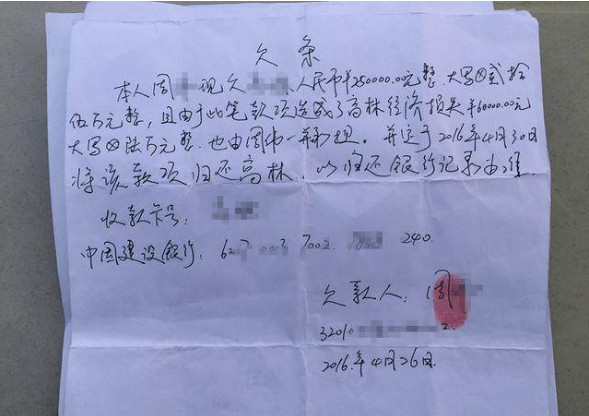 欠条
本人周 现欠 人民币¥250000.00元整,大写⊗贰拾
伍万元整,且由于此笔款项造成了高林经济损失¥60000.00元
大写⊗陆万元整,也由周伟一并承担。并定于2016年4月30日
将该款项归还高林,以归还银行记录为准
收款卡号:
中国建设银行: 7002 240
欠款人:周
32010 2
2016年4月26日